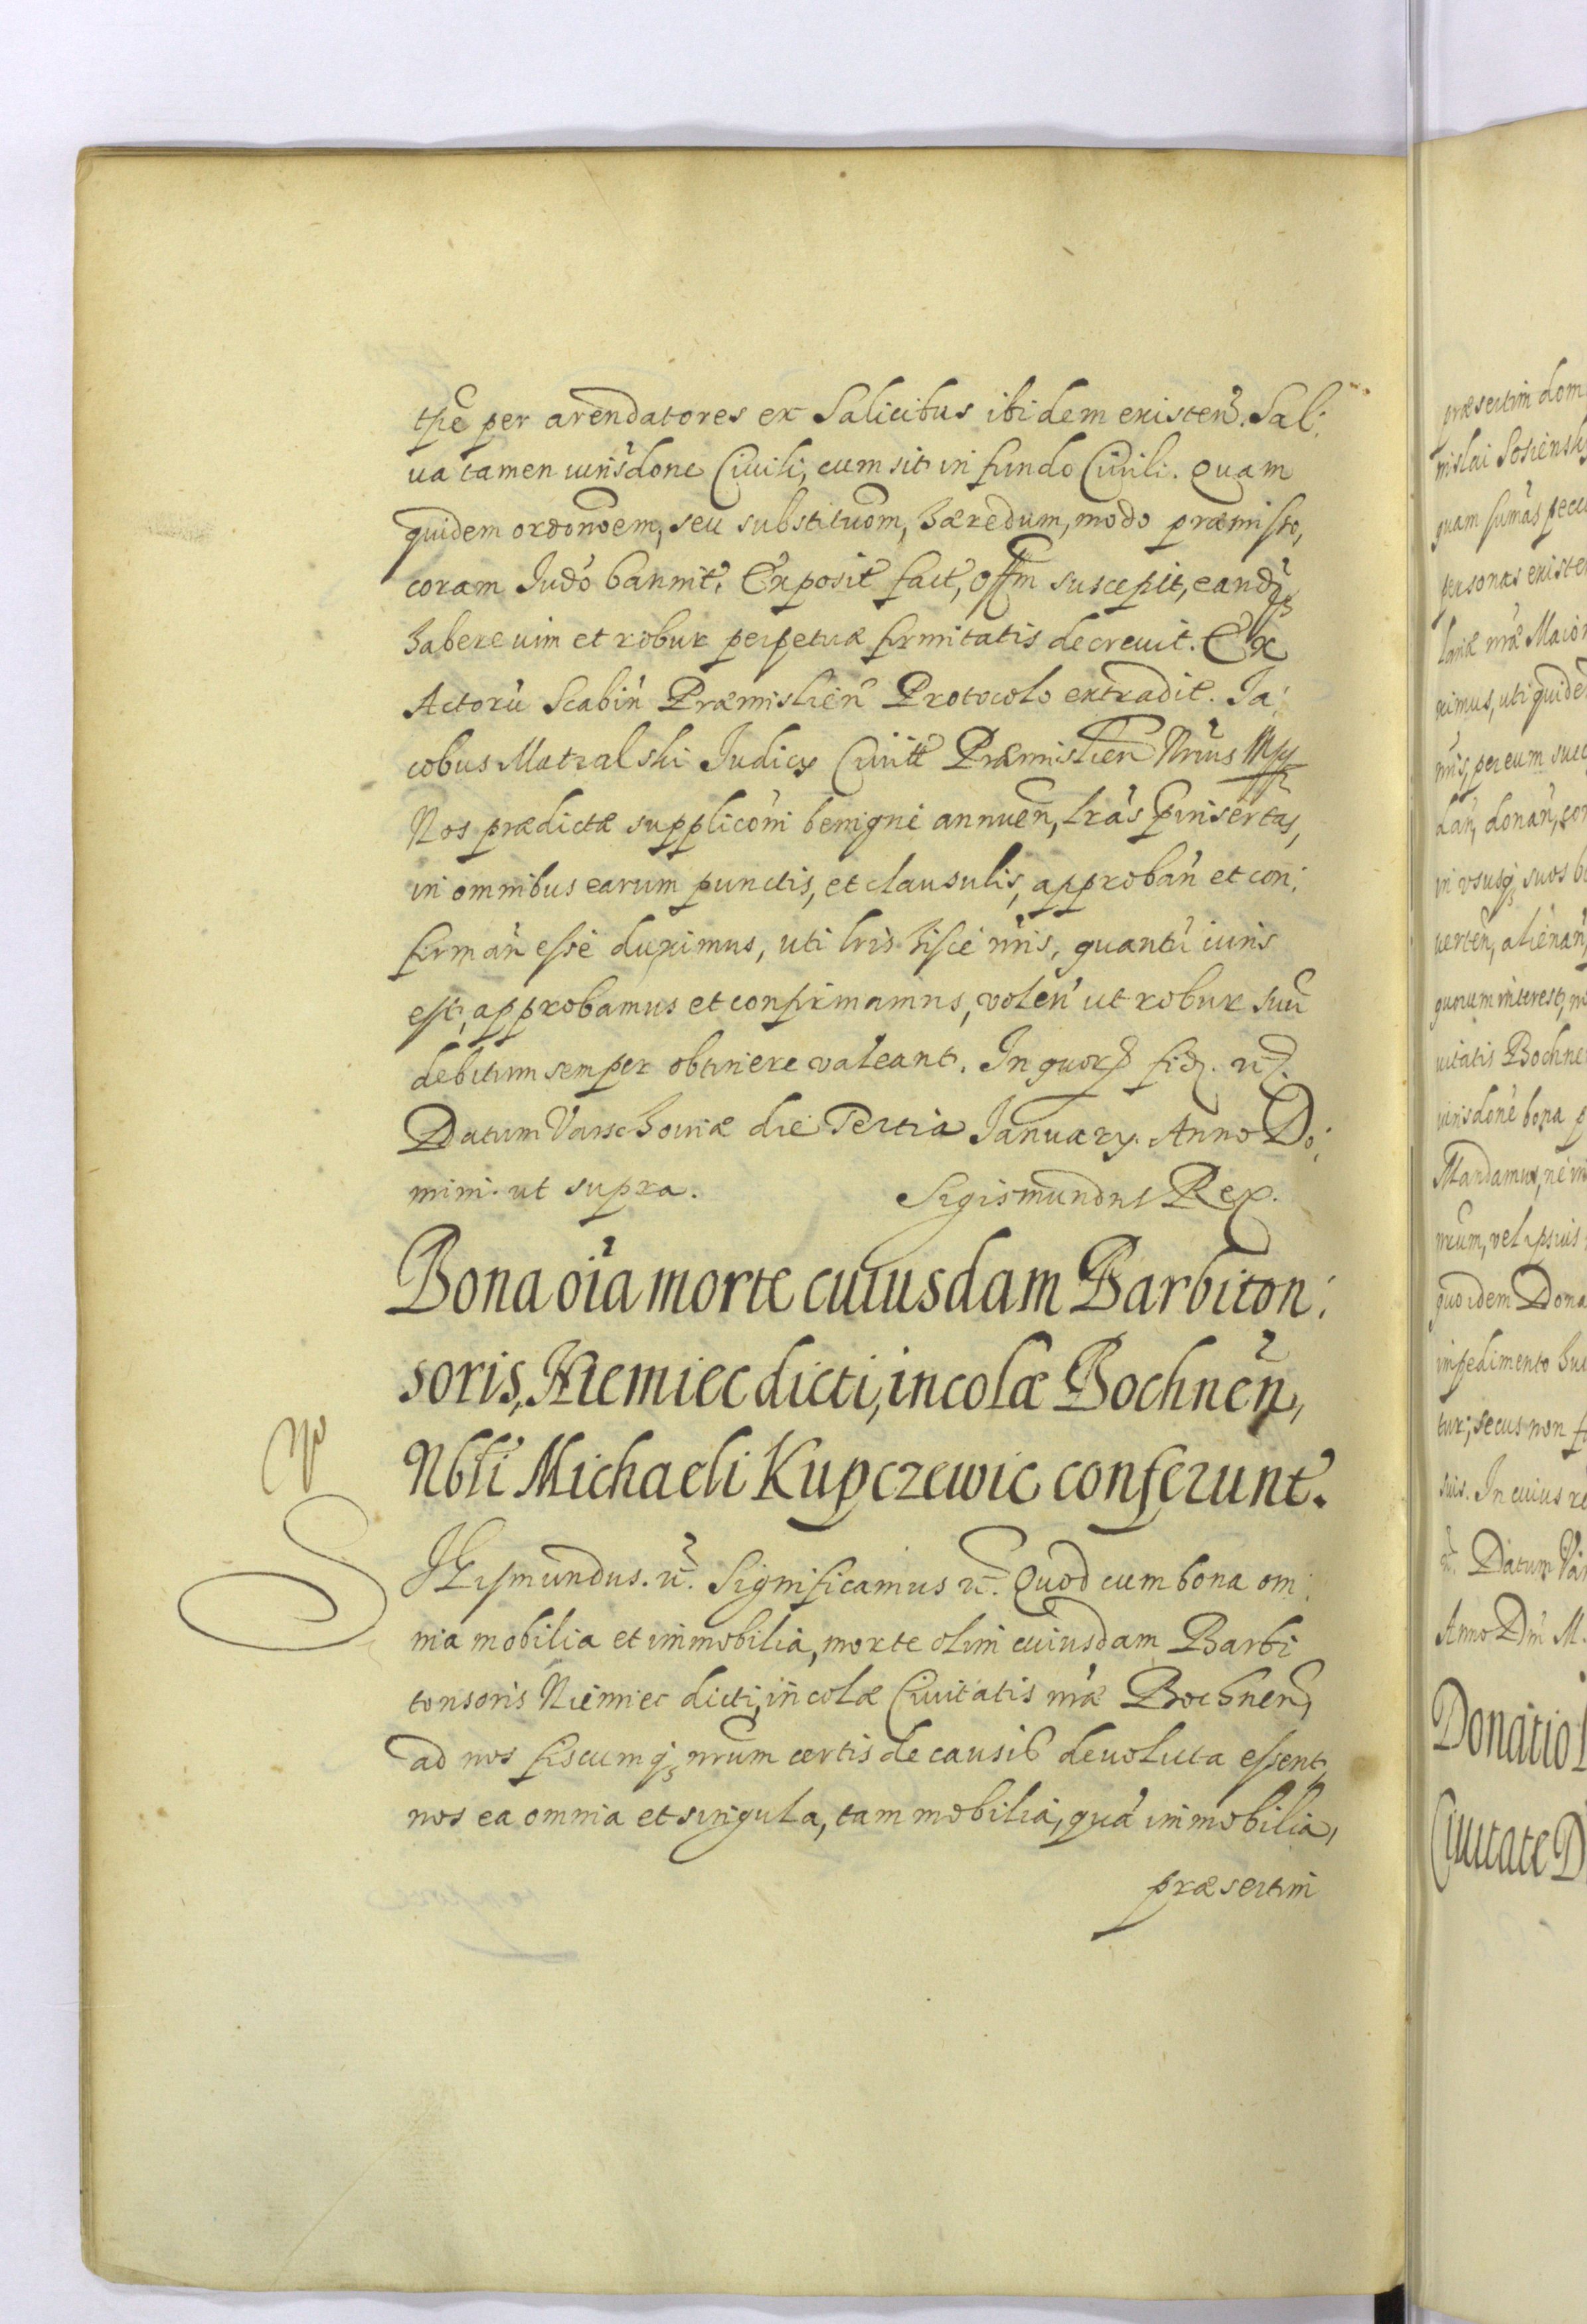 tpe per arendatores ex Salicibus ibidem existeñ. Sal:
ua tamen iurisdone Ciuili, cum sit in fundo Ciuili. Quam
quidem ordonoem, seu substituom, hæredum, modo præmisso,
coram Iudo bannit, Exposit fact, Offm suscepit, eandq3
habere uim et robur perpetuæ firmitatis decreuit. Ex
Actorũ Scabiñ Præmislieñ Protocolo extradit. Ia:
cobus Matralski Iudicy Ciuit Præmislien Nrius
Nos prædictæ supplicõni benigne annueñ, lras pinsertas,
in omnibus earum punctis, et clausulis, approbañ et con:
firmañ esse duximus, uti lris hisce nris, quantũ iuris
est, approbamus et confirmamus, voleñ ut robur suũ
debitum semper obtinere valeant. In quor fid. rc.
Datum Varschouiæ die Tertia Ianuary. Anno Do:
mini ut supra. Sigismundus Rex.
Bona oĩa morte cuiusdam Barbiton:
soris, Niemiec dicti, incolæ Bochneñ,
Nbli Michaeli Kupczewic conferunt.
SIgismundus. rc. Significamus rc. Quod cum bona om:
nia mobilia et immobilia, morte olim cuiusdam Barbi
tonsoris Niemiec dicti, incolæ Ciuitatis nræ Bochneñ,
ad nos fiscumq3 nrum certis de causis deuoluta essent,
nos ea omnia et singula, tam mobilia, quã immobilia,
præsertim
præsertim dom
mislai Sosiensk
quam sumas pecu
personas existe
lariæ nræ Maior
ximus, uti quide
nris, per eum succ
dañ, donañ, con
in vsusq3 suos b
uerteñ, alienañ,
quorum interest, no
uitatis Bochne
iurisdone bona p
Mandamus, ne in
nrum, vel ipsius
quo idem Dona
impedimento hu
tur; secus non f
suis. In cuius re
rc. Datum Var
Anno Dñi M.
Donatio
Ciuitate D